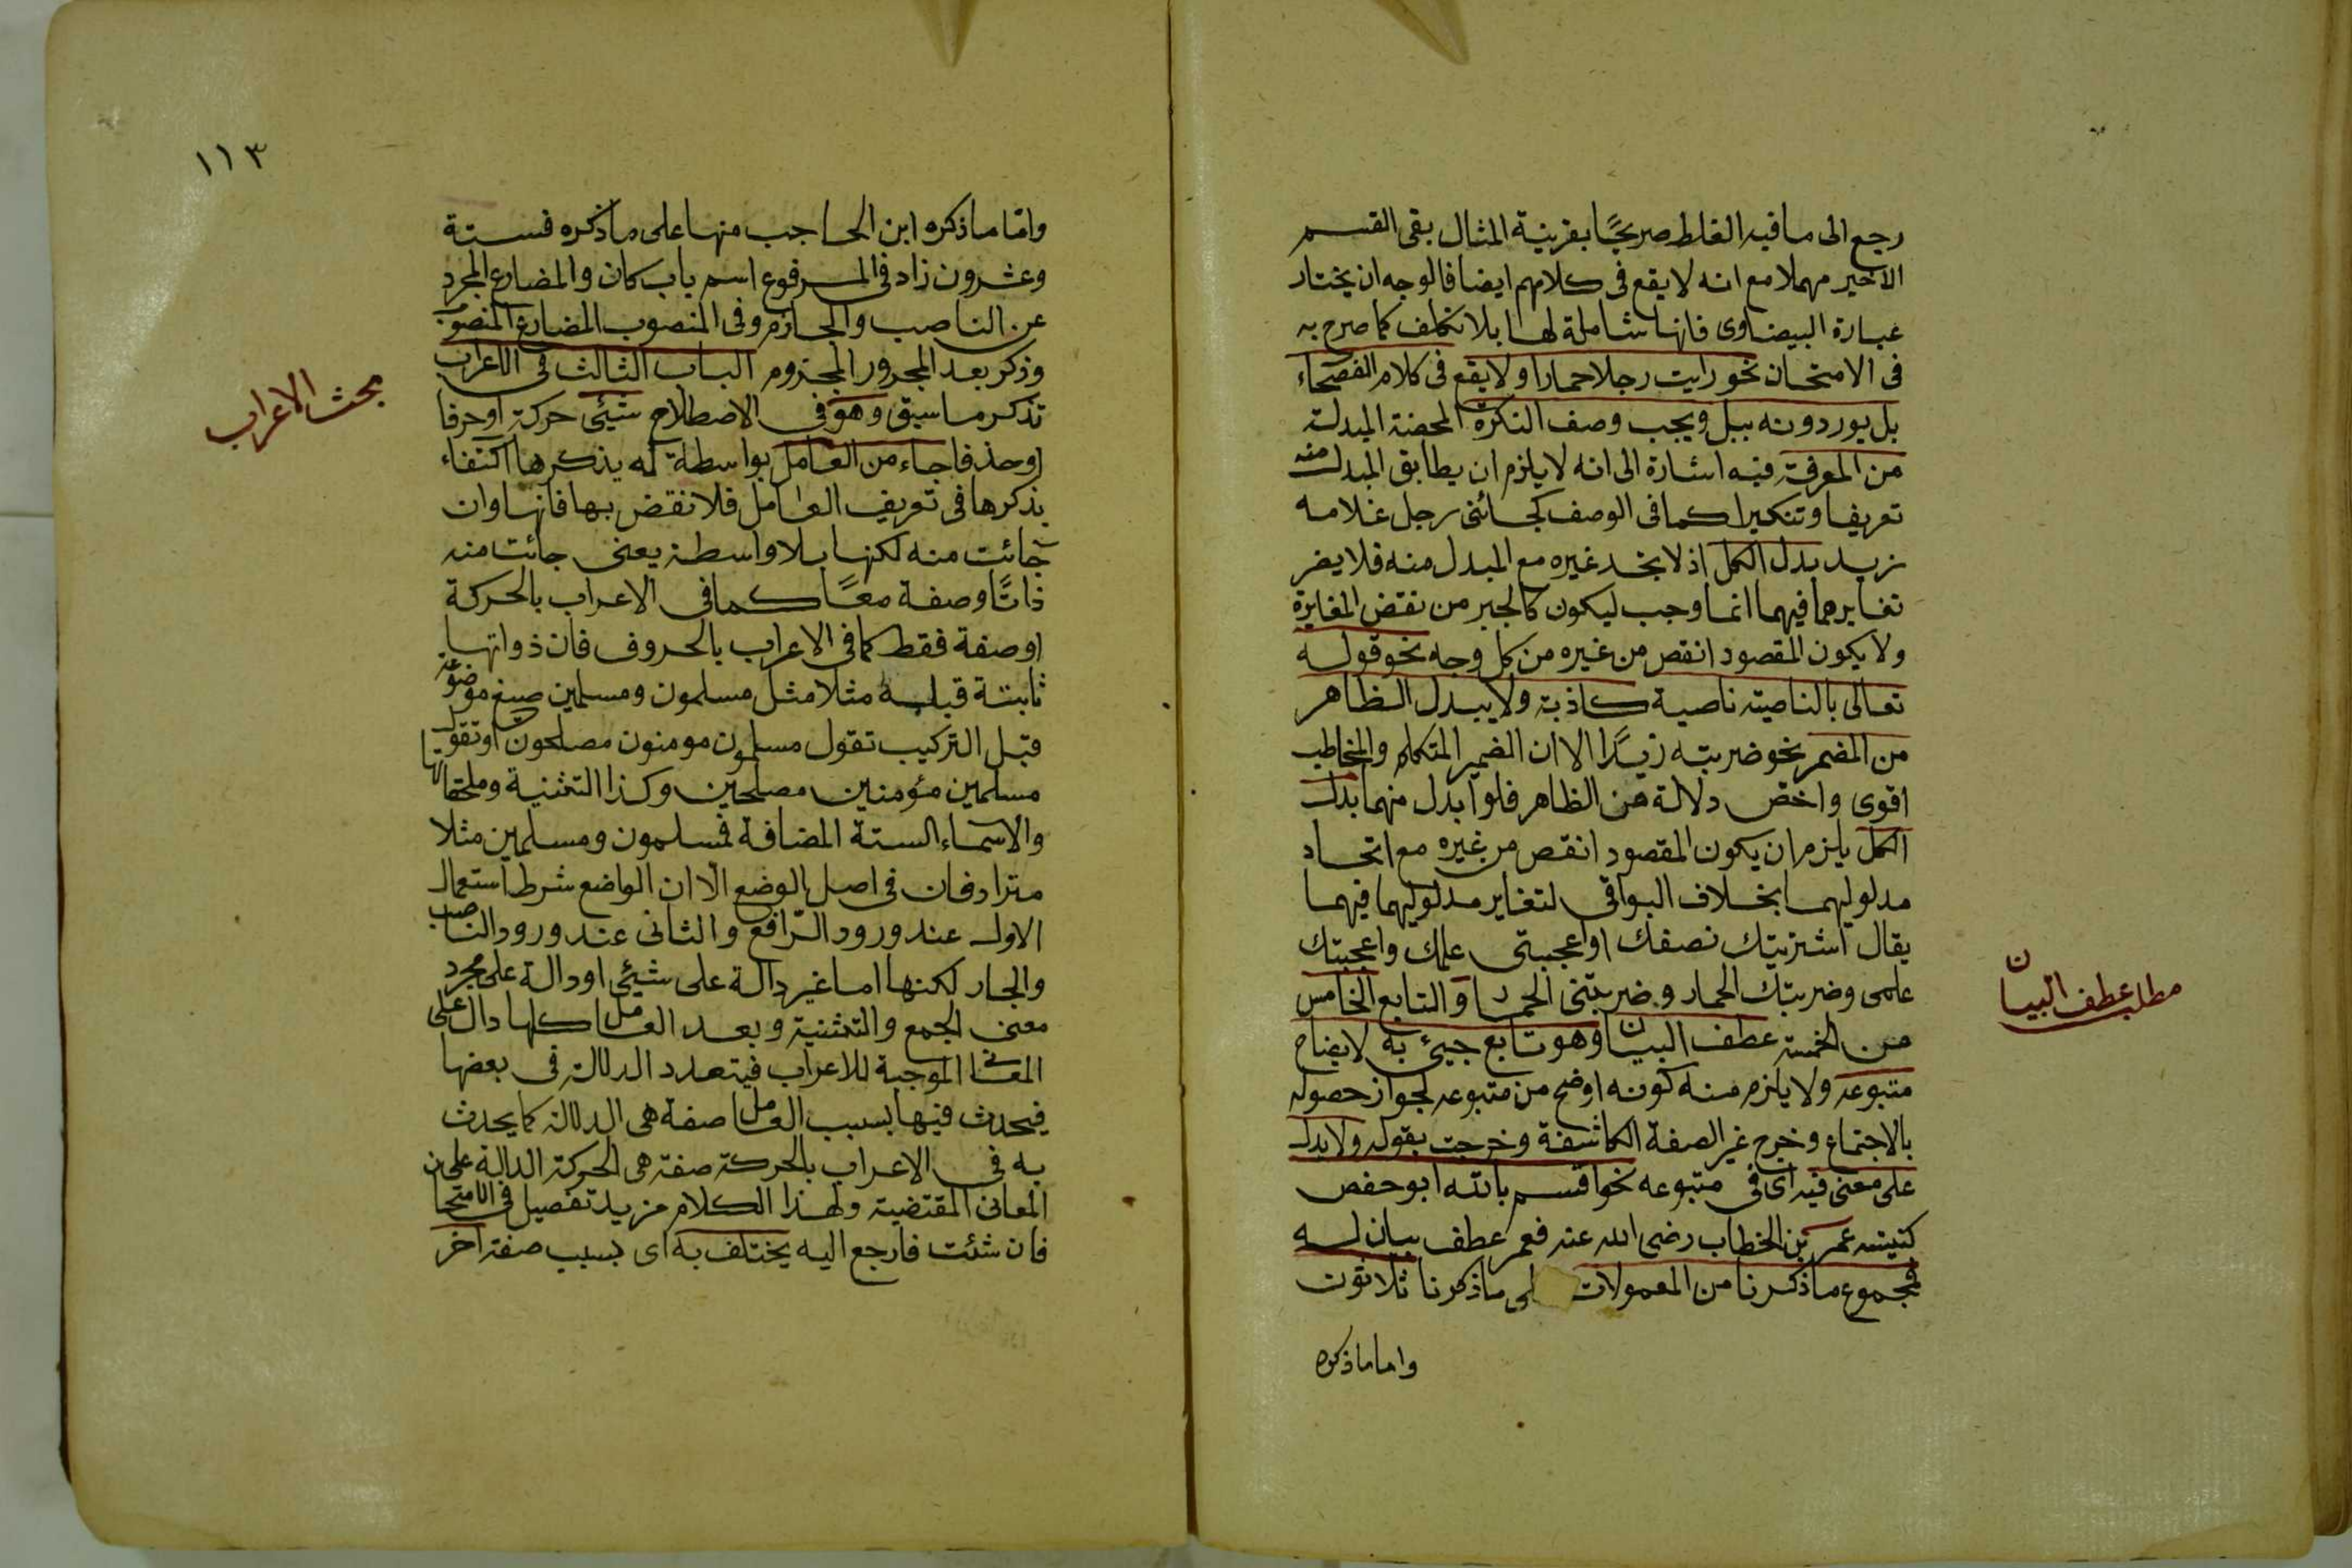 رجع الى ما فيه الغلط صريحًا بقرينة المثال بقى القسم
الاخير مهملا مع انه لا يقع فى كلامهم ايضا فالوجه ان يختار
عبارة البيضاوى فانها شاملة لها بلا تكلف كما صرح به
فى الامتحان نحو رايت رجلا حمارا ولا يقع فى كلام الفصحاء
بل يوردونه ببل ويجب وصف النكرة المحضة المبدلة
من المعرفة فيه اشارة الى انه لا يلزم ان يطابق المبدل منه
تعريفا وتنكيرا كما فى الوصف كجائنى رجل غلامه
زيد بدل الكل اذ لا يتحد غيره مع المبدل منه فلا يضر
تغايرهما فيهما انما وجب ليكون كالجبر من نقض المغايرة
ولا يكون المقصود انقص من غيره من كل وجه نحو قوله
تعالى بالناصية ناصية كاذبة ولا يبدل الظاهر
من المضمر نحو ضربته زيدًا الا ان الضمير المتكلم والمخاطب
اقوى واخص دلالة من الظاهر فلو ابدل منهما بدل
الكل يلزم ان يكون المقصود انقص من غيره مع اتحاد
مدلوليهما بخلاف البواقى لتغاير مدلوليهما فيهما
يقال اشتريتك نصفك او اعجبتى علمك واعجبتك
علمى وضربتك الحمار وضربتنى الحمار و التابع الخامس
من الخمسة عطف البيان وهو تابع جيئ به لايضاح
متبوعه ولا يلزم منه كونه اوضح من متبوعه لجواز حصوله
بالاجتماع وخرج غير الصفة الكاشفة وخرجت بقوله ولا يدل
على معنى فيه اى فى متبوعه نحو اقسم بالله ابو حفص
كنيته عمر بن الخطاب رضى الله عنه فعمر عطف بيان له
فمجموع ما ذكرنا من المعمولات على ما ذكرنا ثلاثون
واما ما ذكره
مطلب عطف البيان
١١٣
وامّا ما ذكره ابن الحاجب منها على ما ذكره فستة
وعشرون زاد فى المرفوع اسم باب كان والمضارع المجرد
عن الناصب والجازم وفى المنصوب المضارع المنصوب
وذكر بعد المجرور المجزوم الباب الثالث فى الاعراب
تذكر ما سبق وهو فى الاصطلاح شيئ حركة او حرفا
او حذفا جاء من العامل بواسطة لم يذكرها اكتفاء
بذكرها فى تعريف العامل فلا نقض بها فانها وان
جائت منه لكنها بلا واسطة يعنى جائت منه
ذاتًا وصفة معًا كما فى الاعراب بالحركة
او صفة فقط كما فى الاعراب بالحروف فان ذواتها
ثابتة قبله مثلا مثل مسلمون ومسلمين صيغ موضوعة
قبل التركيب تقول مسلمون مومنون مصلحون او تقول
مسلمين مؤمنين مصلحين وكذا التثنية وملحقاتها
والاسماء الستة المضافة فمسلمون ومسلمين مثلا
مترادفان فى اصل الوضع الّا ان الواضع شرط استعمال
الاول عند ورود الرّافع والثانى عند ورود الناصب
والجار لكنها اما غير دالة على شيئى او دالة على مجرد
معنى الجمع والتثنية وبعد العامل كلها دال على
المعانى الموجبة للاعراب فيتعدد الدلالة فى بعضها
فيحدث فيها بسبب العامل صفة هى الدلالة كما يحدث
به فى الاعراب بالحركة صفة هى الحركة الدالة على
المعانى المقتضية ولهذا الكلام مزيد تفصيل فى الامتحان
فان شئت فارجع اليه يختلف به اى بسبب صفة اخر
مبحث الاعراب